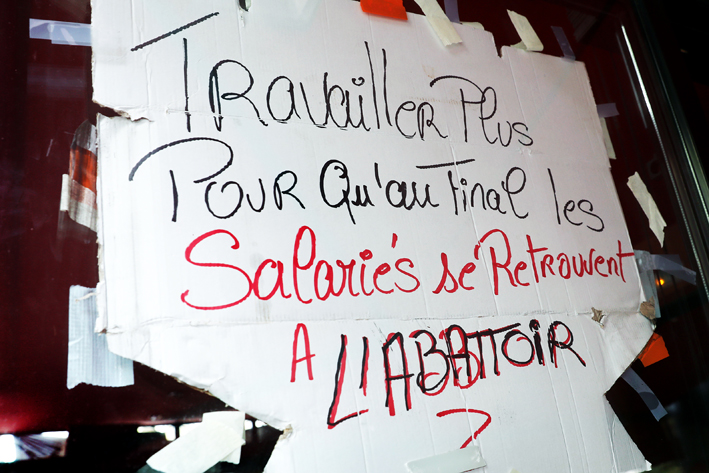 Travailler Plus
Pour Qu'au Final les
Salariés sé Retrouvent
A L'ABATTOIR
?